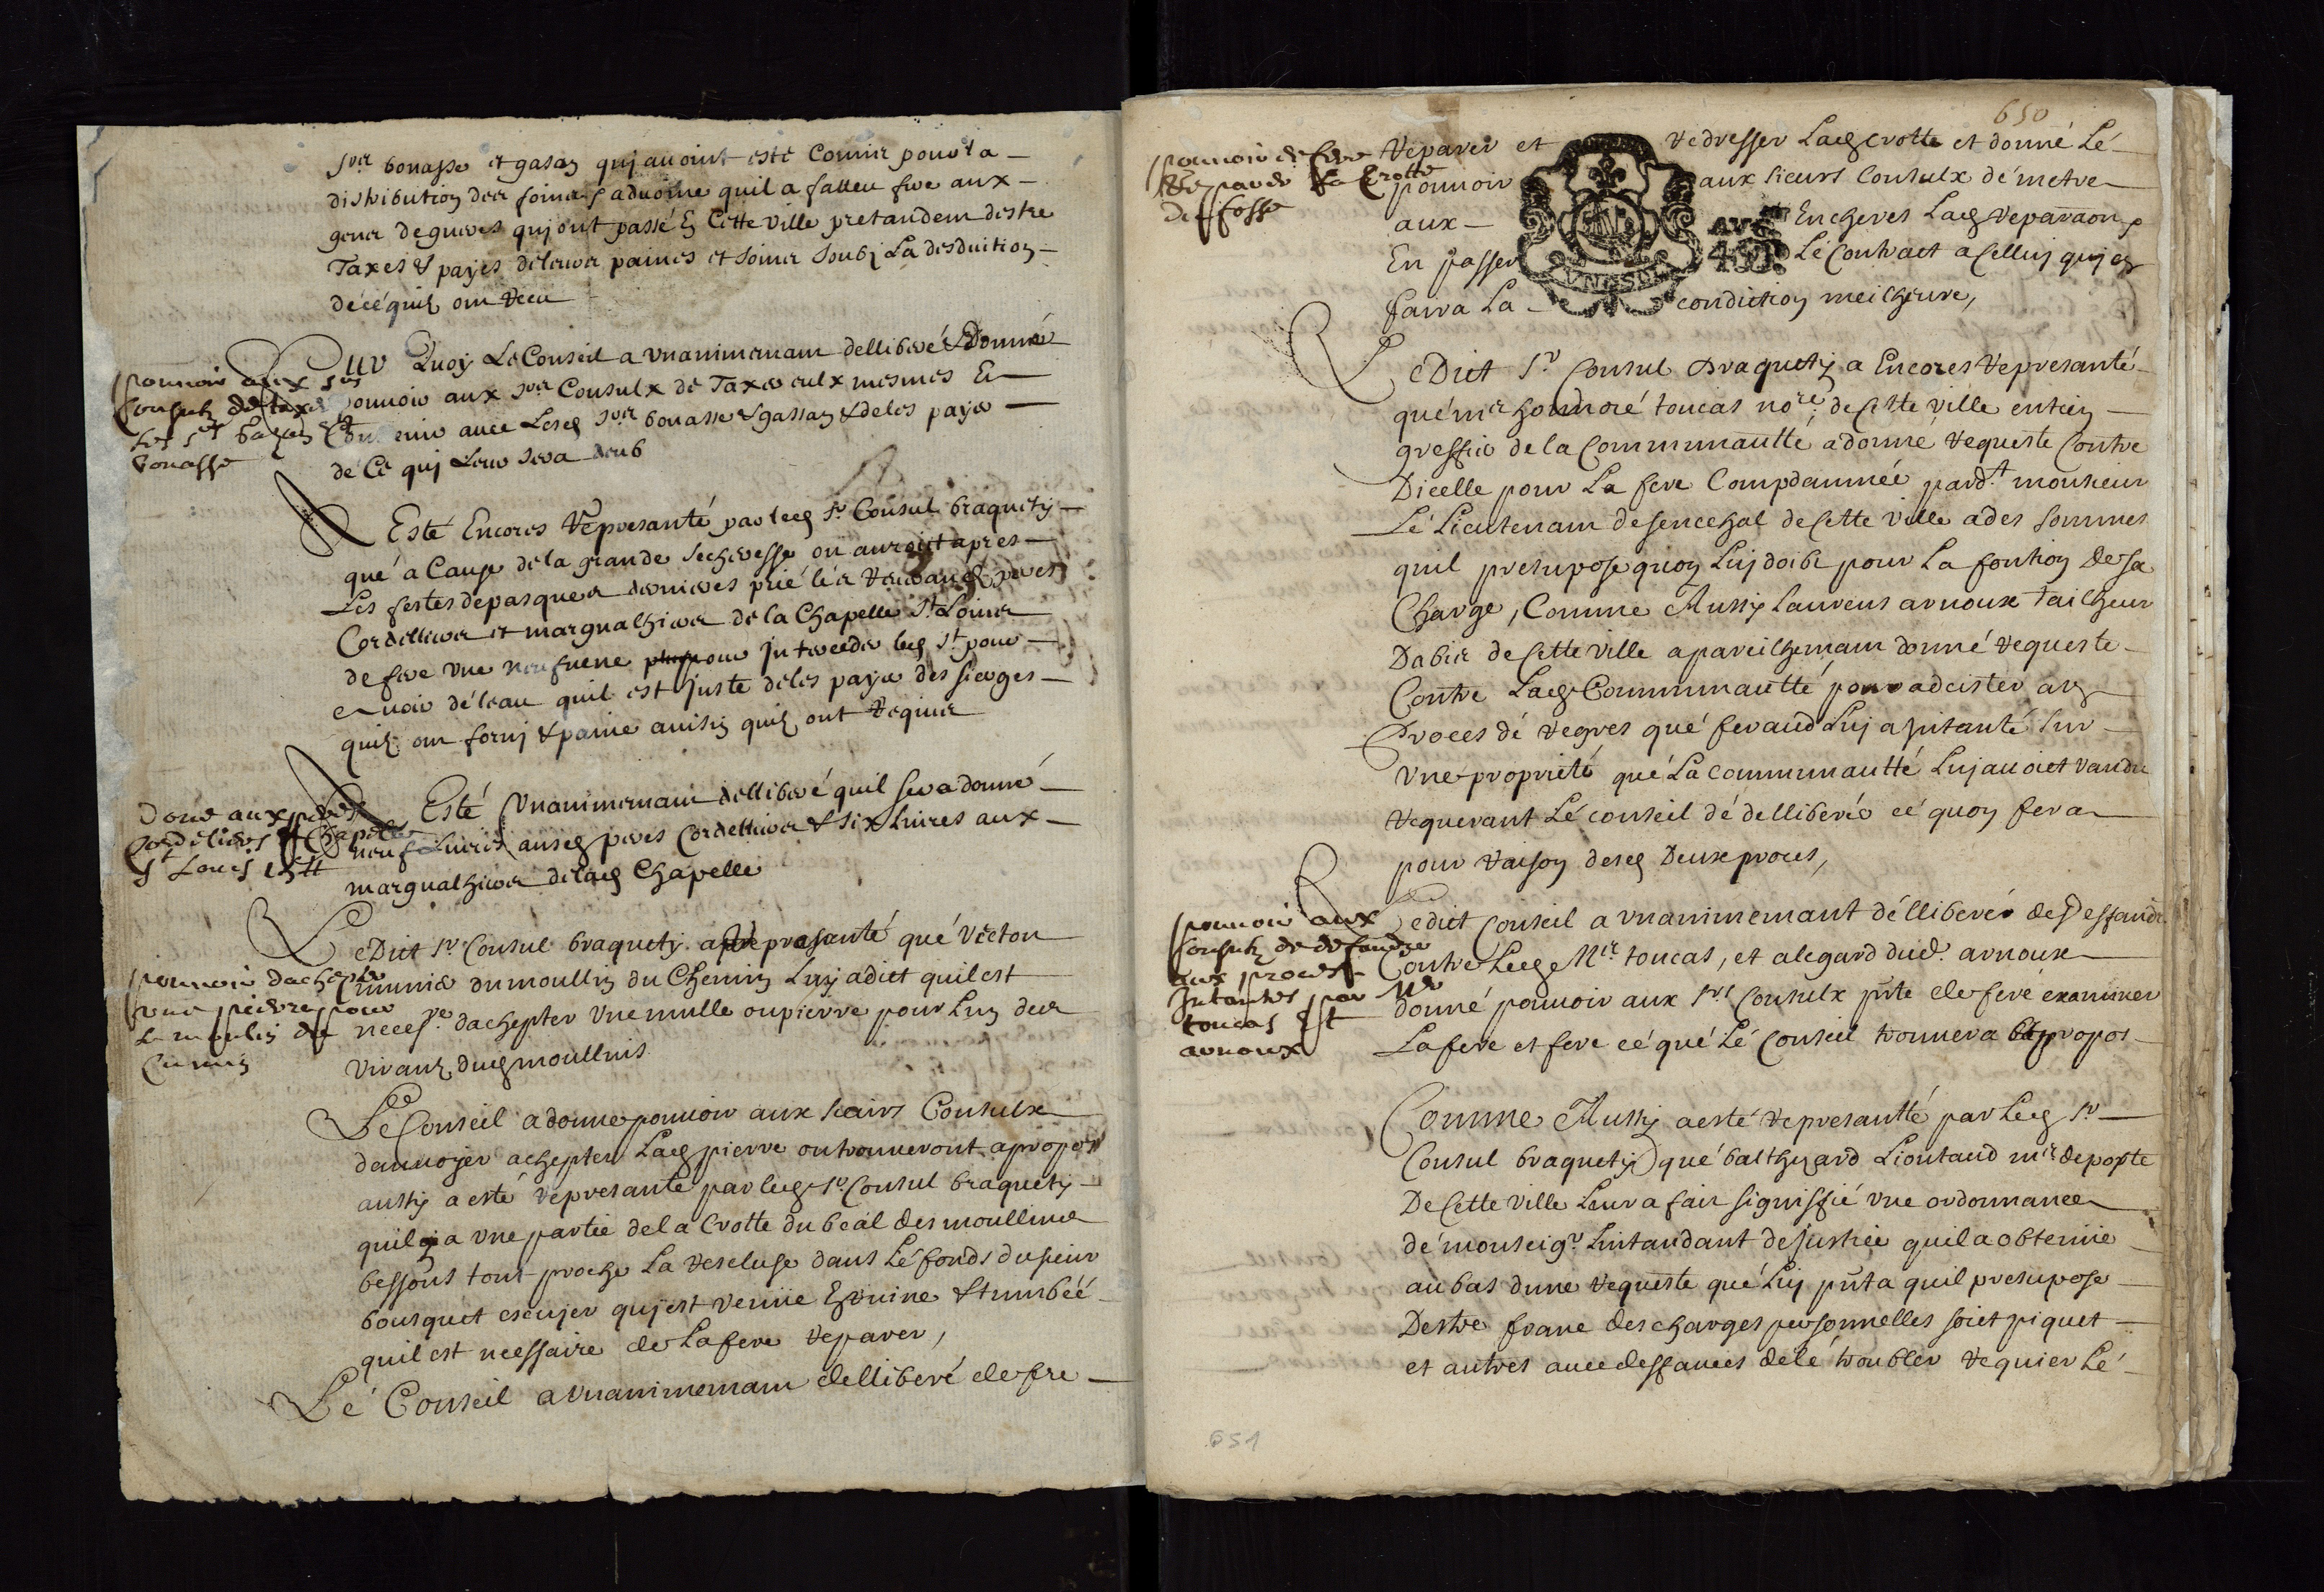 srs bouasse et gasan qui auoint esté Comis pour la
distribution des foins & aduoine quil a falleu fre aux
gens de gueres qui ont passé En Cette Ville pretandent destre
Taxes & payes de leurs paines et soins soubz La desduition
de cé quilz ont Receu
Sur Quoy Le Conseil a vnanimemam delliberé & Donné
pouuoir aux srs Consulx de Taxer eulx mesmes Et
Conuenir auec Lesd srs bouasse & gassan & de les payer
dé Cé qui Leur sera deub
pouuoir aux srs
Consulz de taxer
Les srs gasan Et
bouasse
A Esté Encores Représanté par led sr Consul braquety
qué a Cause de la grande secheresse on auroit apres
Les festes de pasques dernieres prié lés Reuerands peres
Cordelliers et marguilhiers dé la Chapelle st Loüis
de fere vne neufuene pour Interceder led st pour
auoir dé leau quil est Juste dé les payer des sierges
quilz ont forny & paine ausy quilz ont Requis
A Esté Vnanimemam delliberé quil sera donné
neuf Liures ausd peres Cordelliers & six Liures aux
marguilhiers de lad Chapelle
Doné aux peres
Cordeliers et Chapelle
st Louis 15 tt
Ledict sr Consul braquety a represanté qué Victon
munier du moullin du Chemin Luy a dict quil est
necesre dachepter Vne mulle ou pierre pour Lun des
viranz dud moullins
pouuoir dachepter
vne pierre pour
Le moulin du
Cemin
Le Conseil a donne pouuoir aux sieurs Consulx
danuoyer achepter Lad pierre ou trouueront apropos
aussy a esté représanté par led sr Consul braquety
quil y a vne partie de la Crotte du beal des moullins
bessons tout proche La Rescluse dans Lé fonds du sieur
bousquet escuyer qui est venue En ruine & tumbéé
quil est necessaire de La fere reparer,
Lé Conseil a vnanimemam delliberé de fre
650
Reparer et redresser Lad Crotte et donné Lé
pouuoir aux sieurs Consulx dé metre
aux Encheres Lad Reparaon
En passer Lé Contract a Celluy qui en
faira La condiction meilheure,
pouuoir de fere
Reparer La Crotte
de fosse
AVG
VN SOL
Ledict sr Consul Braquety a Encores Represanté
qué mr honnoré toucas nore de Cette ville entien
greffier de la Communautté a donné Requeste Contre
Dicelle pour La fere Compdamnéé pardt monsieur
Lé Lieutenam de senechal de Cette Ville a des sommes
quil presupose quon Luy doibt pour La fontion De sa
Charge, Comme Aussy Laurens arnoux tailheur
Dabis de Cette ville a pareilhemam donné Requeste
Contre Lad Communautté pour adcister au
Proces dé regres qué feraud Luy a Jntanté sur
vne proprieté qué La Communautté Luy auoict vandu
Requerant Lé conseil dé delliberér cé quon fera
pour raison desd Deux proces,
Ledict Conseil a vnanimemant délliberér de Deffandre
Contre Led Mr toucas, et alegard dud. arnoux
donné pouuoir aux srs Consulx pnte de feré examiner
Lafere et fere cé qué Lé Conseil trouuera apropos
pouuoir aux
Consulz de defandre
aux proces
Intantés par Mr
toucas Et
arnoux
Comme Aussy a esté represantté par Led sr
Consul braquety qué balthezard Lioutaud mre de poste
De Cette ville Leur a fait signiffié vne ordonnance
dé monseigr Lintandant de Justice quil a obtenue
au bas dune Requeste qué Luy pnta quil presupose
Destre franc des charges personnelles soiet piquet
et autres auec deffances dé lé troubler Requier Lé
651